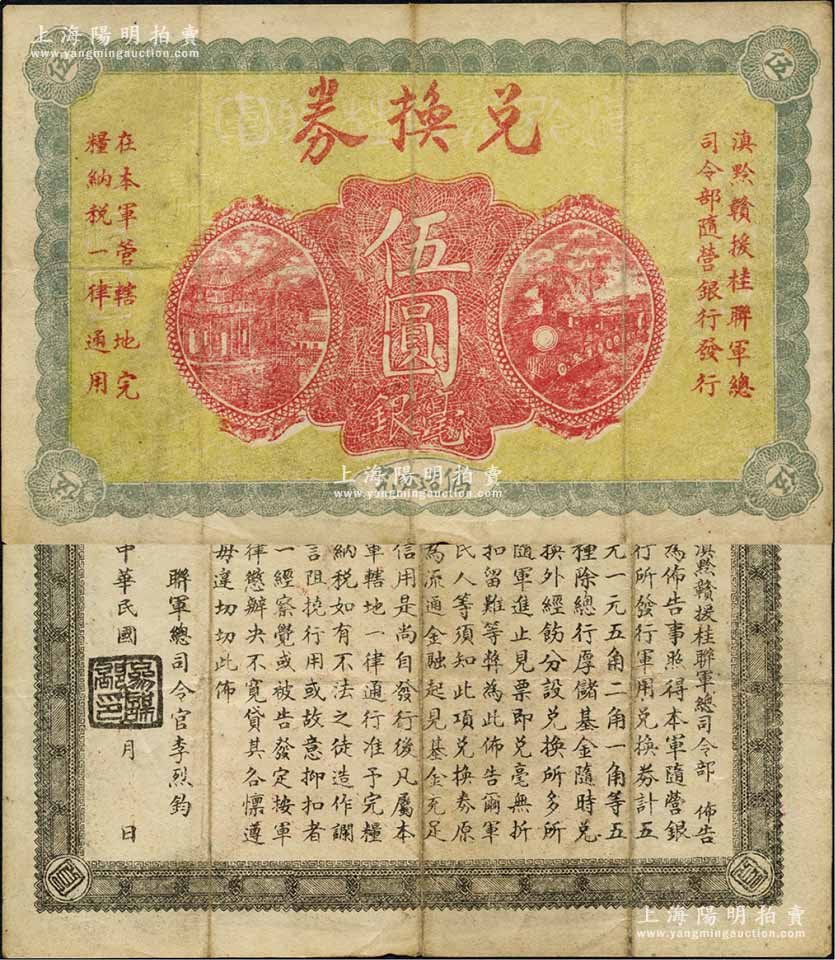 上海陽明拍賣
www.yangmingauction.com
上海陽明拍賣
www.yangmingauction.com
伍
伍
兑換券
滇黔贛援桂聯軍總
司令部隨營銀行發行
伍圓
毫銀
在本軍管轄地完
糧納税一律通用
伍
伍
上海陽明拍賣
www.yangmingauction.com
滇黔贛援桂聯軍總司令部 佈告
為佈告事照得本軍隨營銀
行所發行軍用兑換券計五
元一元五角二角一角等五
種除總行厚儲基金隨時兑
換外經飭分設兑換所多所
隨軍進止見票即兑毫無折
扣留難等弊為此佈告爾軍
民人等項知此項兑換券原
為流通金融起見基金充足
信用是尚自發行後凡屬本
軍轄地一律通行准予完糧
納税如有不法之徒造作讕
言阻撓行用或故意抑扣者
一經察覺或被告發定按軍
律懲辦决不寬貸其各懍遵
毋違切切此佈
聯軍總司令官李烈鈞
中華民國 月 日
上海陽明拍賣
www.yangmingauction.com